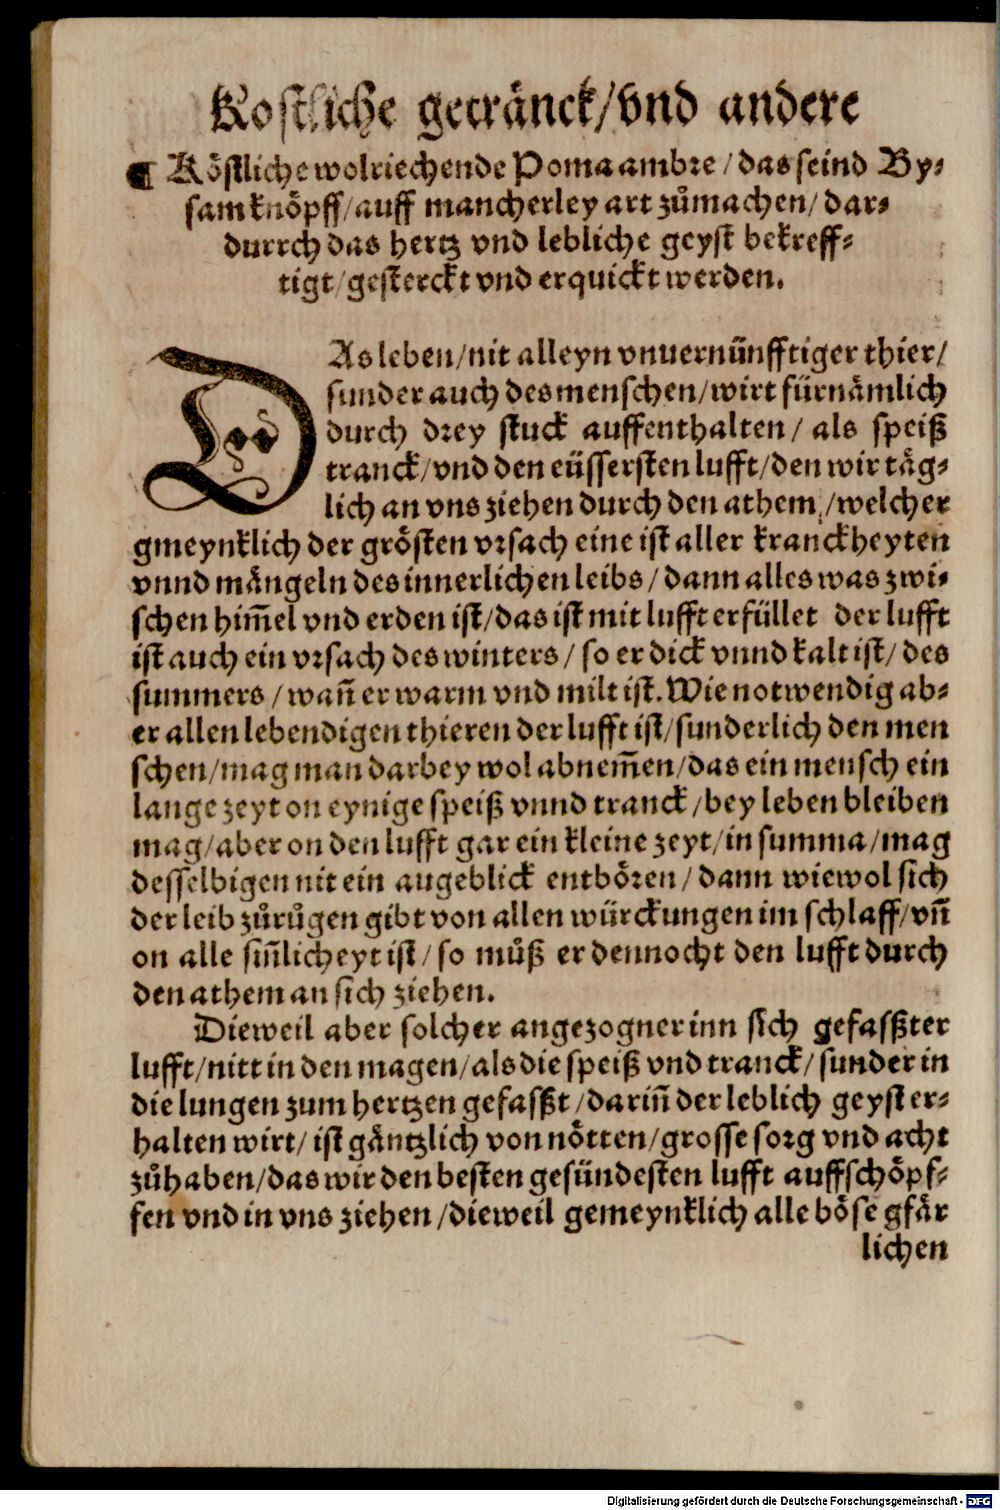 Kostliche getränck/vnd andere
¶ Köstliche wolriechende Poma ambre/das seind By-
sam knöpff/auff mancherley art zůmachen/dar-
durrch das hertz vnd lebliche geyst bekreff-
tigt/gesterckt vnd erquickt werden.
DAs leben/nit alleyn vnuernünfftiger thier/
sunder auch des menschen/wirt fürnämlich
durch drey stuck auffenthalten/als speiß
tranck/vnd den eüssersten lufft/den wir täg-
lich an vns ziehen durch den athem/welcher
gmeynklich der grösten vrsach eine ist aller kranckheyten
vnnd mängeln des innerlichen leibs/dann alles was zwi-
schen him̃el vnd erden ist/das ist mit lufft erfüllet der lufft
ist auch ein vrsach des winters/so er dick vnnd kalt ist/des
summers/wañ er warm vnd milt ist. Wie notwendig ab-
er allen lebendigen thieren der lufft ist/sunderlich den men
schen/mag man darbey wol abnem̃en/das ein mensch ein
lange zeyt on eynige speiß vnnd tranck/bey leben bleiben
mag/aber on den lufft gar ein kleine zeyt/in summa/mag
desselbigen nit ein augeblick entbören/dann wiewol sich
der leib zůrůgen gibt von allen würckungen im schlaff/vñ
on alle siñlicheyt ist/so můß er dennocht den lufft durch
den athem an sich ziehen.
Dieweil aber solcher angezogner inn sich gefasßter
lufft/nitt in den magen/als die speiß vnd tranck/sunder in
die lungen zum hertzen gefasßt/dariñ der leblich geyst er-
halten wirt/ist gäntzlich von nötten/grosse sorg vnd acht
zůhaben/das wir den besten gesündesten lufft auffschöpf-
fen vnd in vns ziehen/dieweil gemeynklich alle böse gfär
lichen
Digitalisierung gefördert durch die Deutsche Forschungsgemeinschaft - DFG